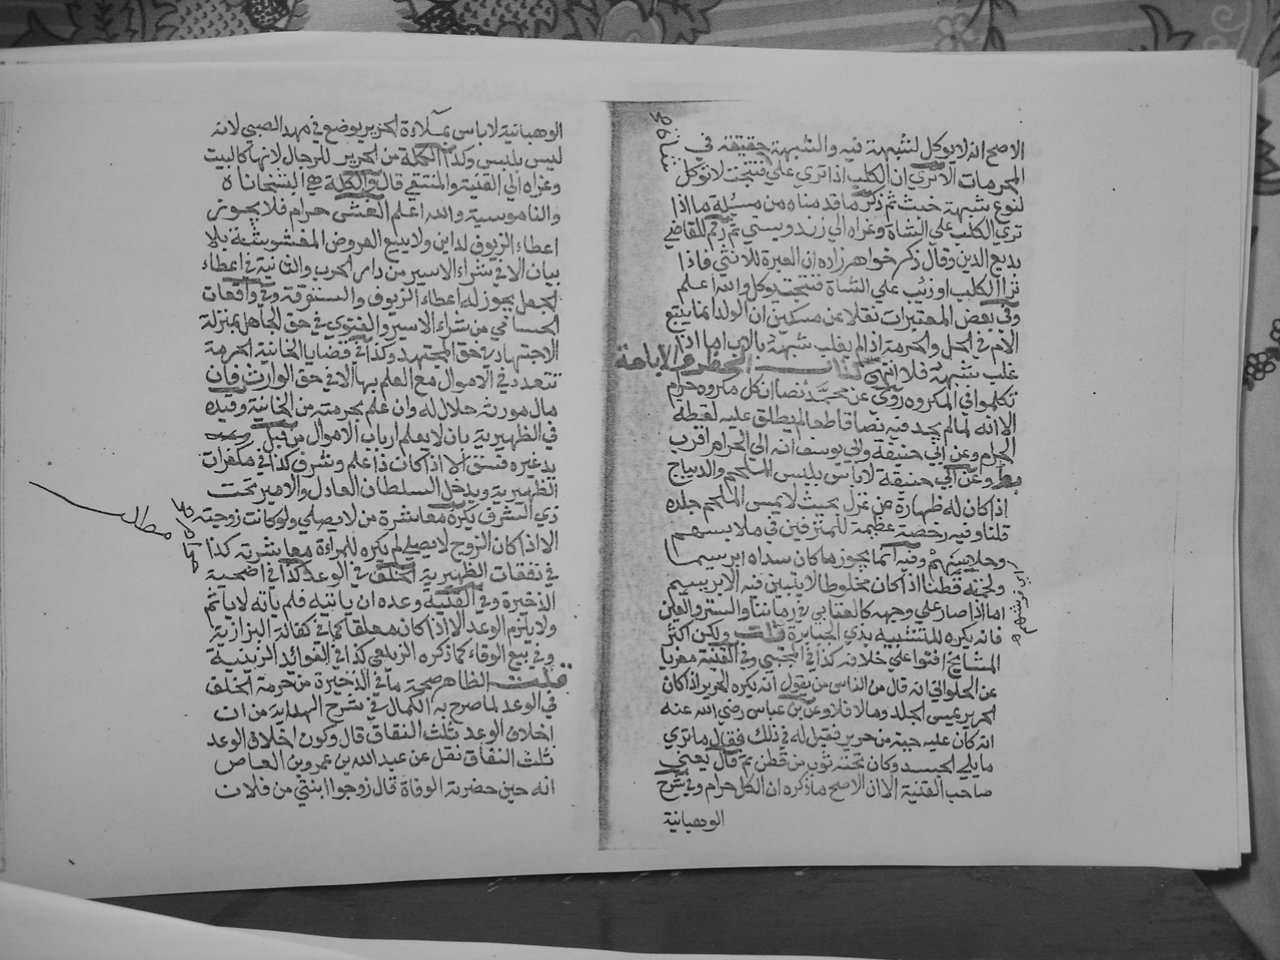 الاصح انه لا يوكل لشبهة فيه والشبهة حقيقة في
المحرمات الا ترى ان الكلب اذا نزي على فنتجت لا توكل
لنوع شبهة خبث ثم ذكر ما قدمناه من مسئلة ما اذا
نزي الكلب على الشاة وعزاه الى زندويستي ثم رقم للقاضي
بديع الدين وقال ذكر خواهر زاده ان العبرة للانثى فاذا
نزا الكلب او ذيب على الشاة فنتجت يوكل والله اعلم
وفي بعض المعتبرات نقلا عن مسكين ان الولد انما يتبع
الام في الحل والحرمة اذا لم يغلب شبهه بالاب اما اذا
غلب شبهه فلا انتهى كتاب الحظر والاباحة
تكلموا في المكروه روي عن محمد نصا ان كل مكروه حرام
الا انه لما لم يجد فيه نصا قاطعا لم يطلق عليه لفظه
الحرام وعن ابي حنيفة وابي يوسف انه الى الحرام اقرب
وعن ابي حنيفة لا باس بلبس الملحم والديباج
اذا كان له ظهارة من غزل بحيث لا يمس الملحم جلده
قلنا وفيه رخصة عظيمة للمترفين في ملابسهم
وفيه انما يجوز ما كان سداه ابريسما
ولحمته قطنا اذا كان مخلوطا لا يتبين فيه الابريسم
اما اذا صار على وجهه كالعتابي في زماننا والستر والعين
فانه يكره للتشبيه بذي الجبابرة قلت ولكن اكثر
المشايخ افتوا على خلافه كذا في المجتبى وفي القنية معزيا
عن الحلواني انه قال من الناس من يقول انه يكره الحرير اذا كان
الحرير يمس الجلد وما لا فلا وعن بن عباس رضي الله عنه
انه كان عليه جبة من حرير فقيل له في ذلك فقال ما ترى
ما يلي الجسد وكان تحته ثوب من قطن ثم قال يعني
صاحب القنية الا ان الاصح ما ذكره ان الكل حرام وفي شرح
الوهبانية
الوهبانية لا باس بملاءة الحرير يوضع في مهد الصبي لانه
ليس بلبس وكذا الكلة من الحرير للرجال لانها كالبيت
وعزاه الى القنية والمنتقي قال والكلة هي البشخاناة
والناموسية والله اعلم الغش حرام فلا يجوز
اعطاء الزيوف لداين ولا يبيع العروض المغشوشة بلا
بيان الا في شراء الاسير من دار الحرب والثانية في اعطاء
الجعل يجوز له اعطاء الزيوف والستوقة وفي واقعات
الحسامي من شراء الاسير والفتوى في حق الجاهل بمنزلة
الاجتهاد في حق المجتهد وكذا في قضايا الخانية الحرمة
تتعدد في الاموال مع العلم بها الا في حق الوارث فان
مال مورثه حلال له وان علم بحرمته من الخانية وقيده
في الظهيرية بان لا يعلم ارباب الاموال من قبل
يد غيره فسق الا اذا كان ذا علم وشرف كذا في مكفرات
الظهيرية ويدخل السلطان العادل والامير تحت
ذي الشرف يكره معاشرة من لا يصلي ولو كانت زوجته
الا اذا كان الزوج لا يصلي لم يكره للمراءة معاشرته كذا
في نفقات الظهيرية الخلف في الوعد كذا في اضحية
الذخيرة وفي القنية وعده ان ياتيه فلم ياته لا ياثم
ولا يلزم الوعد الا اذا كان معلقا كما في كفالة البزازية
وفي بيع الوفاء كما ذكره الزيلعي كذا في الفوائد الزينية
قلت الظاهر صحة ما في الذخيرة من حرمة الخلف
في الوعد لما صرح به الكمال في شرح الهداية من ان
اخلاف الوعد ثلث النفاق قال وكون اخلاف الوعد
ثلث النفاق نقل عن عبد الله بن عمرو بن العاص
انه حين حضرته الوفاة قال زوجوا ابنتي من فلان
مطلب